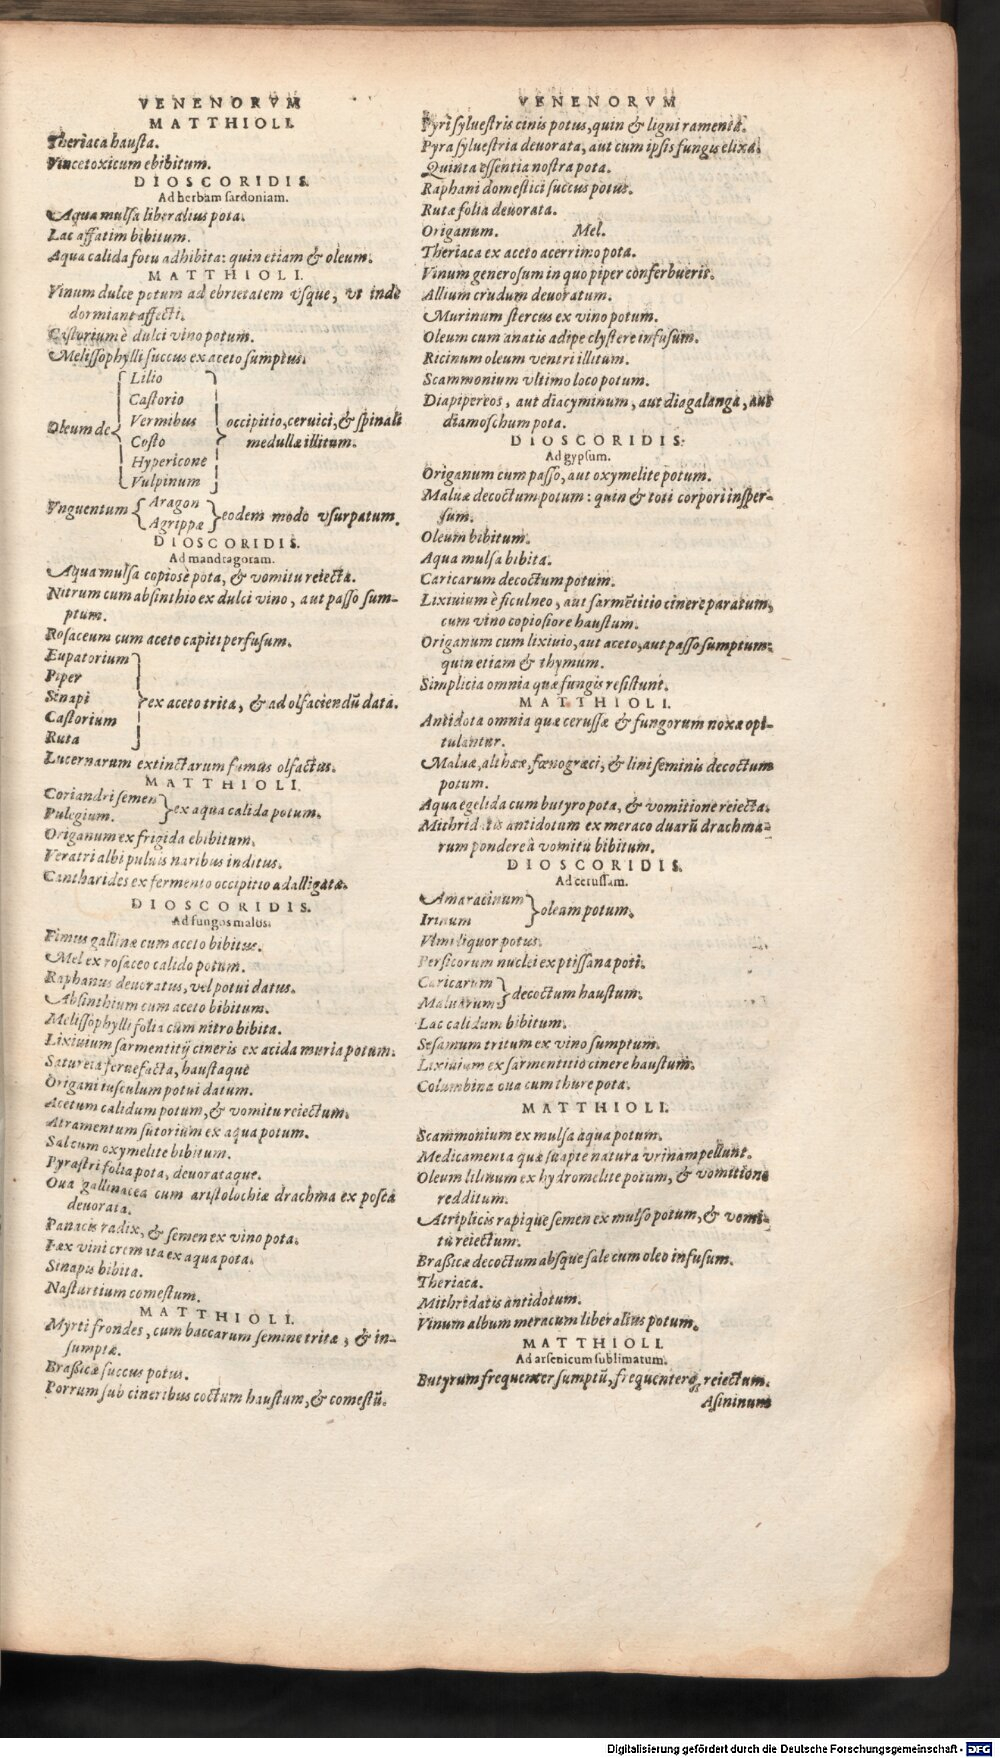 VENENORVM
MATTHIOLI.
Theriaca hausta.
Vincetoxicum ebibitum.
DIOSCORIDIS.
Ad herbam sardoniam.
Aqua mulsa liberalius pota.
Lac affatim bibitum.
Aqua calida fotu adhibita: quin etiam & oleum.
MATTHIOLI.
Vinum dulce potum ad ebrietatem vsque, vt inde
dormiant affecti.
Castorium è dulci vino potum.
Melissophylli succus ex aceto sumptus.
Oleum de
Lilio
Castorio
Vermibus
Costo
Hypericone
Vulpinum
occipitio, ceruici, & spinali
medullæ illitum.
Vnguentum
Aragon
Agrippæ
eodem modo vsurpatum.
DIOSCORIDIS.
Ad mandragoram.
Aqua mulsa copiosè pota, & vomitu reiecta.
Nitrum cum absinthio ex dulci vino, aut passo sum-
ptum.
Rosaceum cum aceto capiti perfusum.
Eupatorium
Piper
Sinapi
Castorium
Ruta
ex aceto trita, & ad olfaciendū data.
Lucernarum extinctarum fumus olfactus.
MATTHIOLI.
Coriandri semen
Pulegium.
ex aqua calida potum.
Origanum ex frigida ebibitum.
Veratri albi puluis naribus inditus.
Cantharides ex fermento occipitio adalligatæ.
DIOSCORIDIS.
Ad fungos malos.
Fimus gallinæ cum aceto bibitus.
Mel ex rosaceo calido potum.
Raphanus deuoratus, vel potui datus.
Absinthium cum aceto bibitum.
Melissophylli folia cum nitro bibita.
Lixiuium sarmentitij cineris ex acida muria potum.
Satureia feruefacta, haustaque
Origani iusculum potui datum.
Acetum calidum potum, & vomitu reiectum.
Atramentum sutorium ex aqua potum.
Sal cum oxymelite bibitum.
Pyrastri folia pota, deuorataque.
Oua gallinacea cum aristolochiæ drachma ex posca
deuorata.
Panacis radix, & semen ex vino pota.
Fæx vini cremata ex aqua pota.
Sinapis bibita.
Nasturtium comestum.
MATTHIOLI.
Myrti frondes, cum baccarum semine tritæ, & in-
sumptæ.
Braßicæ succus potus.
Porrum sub cineribus coctum haustum, & comestū.
VENENORVM
Pyri syluestris cinis potus, quin & ligni ramenta.
Pyra syluestria deuorata, aut cum ipsis fungis elixa.
Quinta essentia nostra pota.
Raphani domestici succus potus.
Rutæ folia deuorata.
Origanum. Mel.
Theriaca ex aceto acerrimo pota.
Vinum generosum in quo piper conferbueris.
Allium crudum deuoratum.
Murinum stercus ex vino potum.
Oleum cum anatis adipe clystere infusum.
Ricinum oleum ventri illitum.
Scammonium vltimo loco potum.
Diapipereos, aut diacyminum, aut diagalanga, aut
diamoschum pota.
DIOSCORIDIS.
Ad gypsum.
Origanum cum passo, aut oxymelite potum.
Maluæ decoctum potum: quin & toti corpori insper-
sum.
Oleum bibitum.
Aqua mulsa bibita.
Caricarum decoctum potum.
Lixiuium è ficulneo, aut sarmētitio cinere paratum,
cum vino copiosiore haustum.
Origanum cum lixiuio, aut aceto, aut passo sumptum:
quin etiam & thymum.
Simplicia omnia quæ fungis resistunt.
MATTHIOLI.
Antidota omnia quæ cerussæ & fungorum noxæ opi-
tulantur.
Maluæ, altheæ, fœnogræci, & lini seminis decoctum
potum.
Aqua egelida cum butyro pota, & vomitione reiecta.
Mithridatis antidotum ex meraco duarū drachma-
rum pondere à vomitu bibitum.
DIOSCORIDIS.
Ad cerussam.
Amaracinum
Irinum
oleum potum.
Vlmi liquor potus.
Persicorum nuclei ex ptissana poti.
Caricarum
Maluarum
decoctum haustum.
Lac calidum bibitum.
Sesamum tritum ex vino sumptum.
Lixiuium ex sarmentitio cinere haustum.
Columbina oua cum thure pota.
MATTHIOLI.
Scammonium ex mulsa aqua potum.
Medicamenta quæ suapte natura vrinam pellunt.
Oleum lilinum ex hydromelite potum, & vomitione
redditum.
Atriplicis rapique semen ex mulso potum, & vomi-
tu reiectum.
Braßicæ decoctum absque sale cum oleo infusum.
Theriaca.
Mithridatis antidotum.
Vinum album meracum liberalius potum.
MATTHIOLI.
Ad arsenicum sublimatum.
Butyrum frequenter sumptū, frequenterq; reiectum.
Asininum
Digitalisierung gefördert durch die Deutsche Forschungsgemeinschaft - DFG